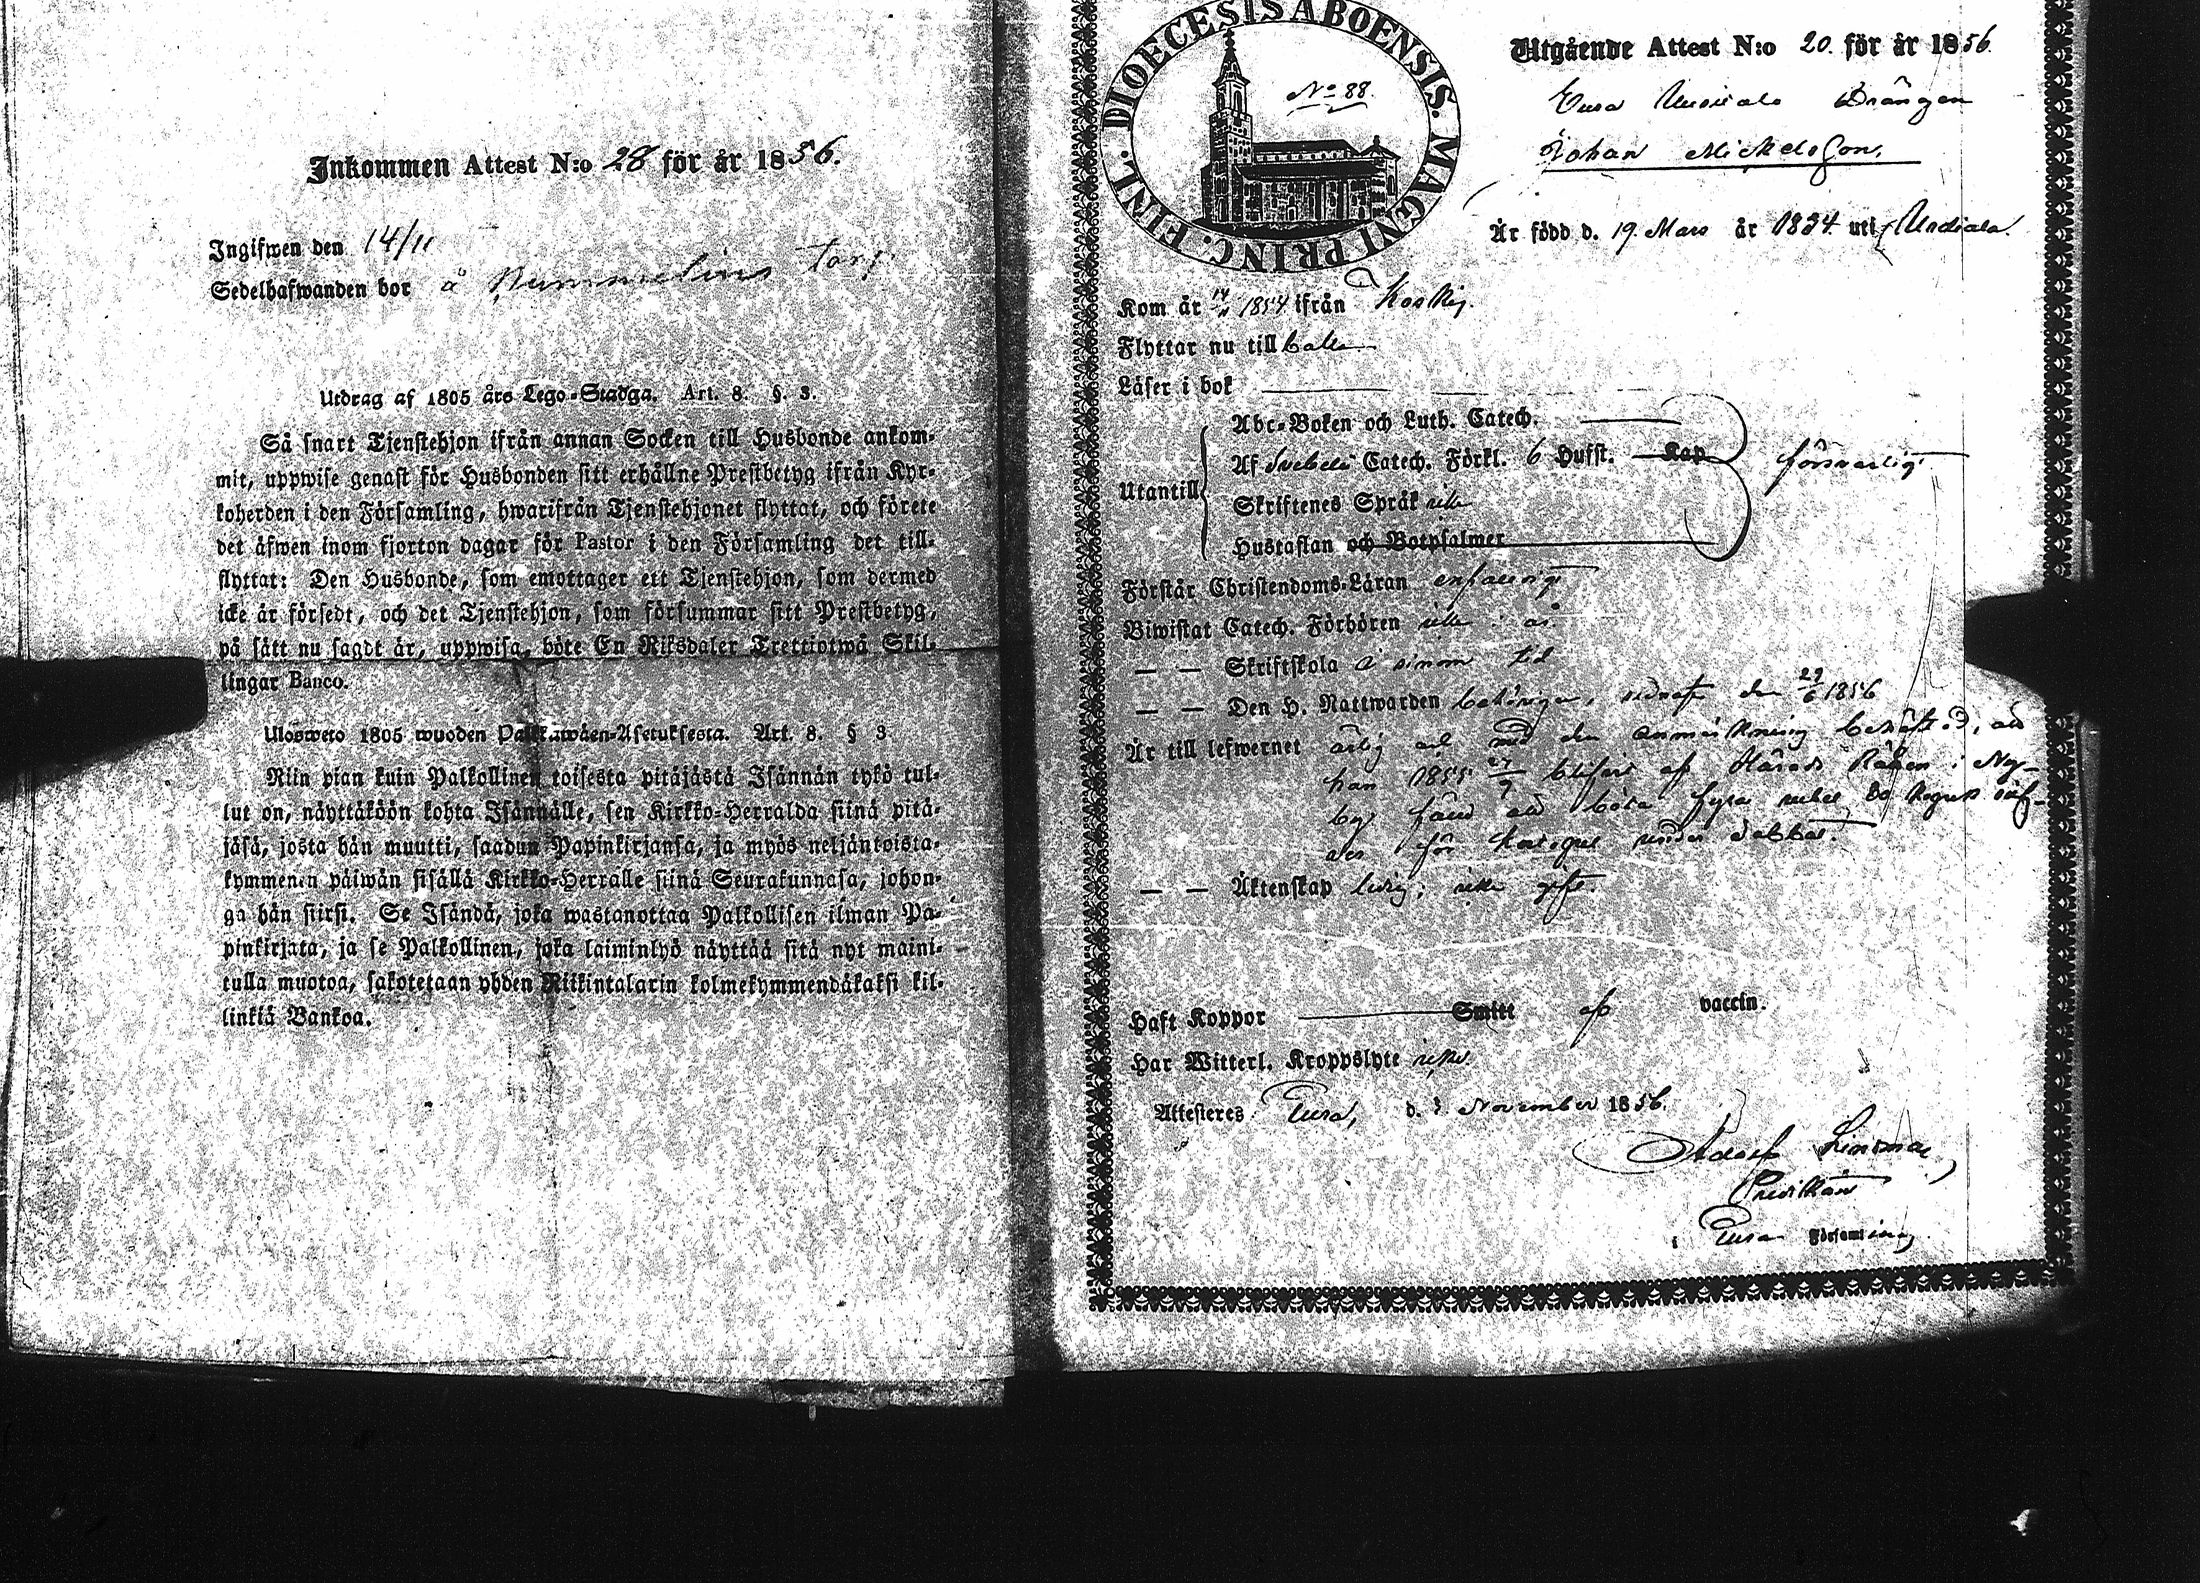 Inkommen Attest N:o 28 för år 1856.
Ingifwen den 14/11
Sedelhafwanden bor å Nummelins torp
Utdrag af 1805 års Lego-Stadga. Art. 8. §. 3.
Så snart Tjenstehjon ifrån annan Socken till Husbonde ankom-
mit, uppwise genast för Husbonden sitt erhållne Prestbetyg ifrån Kyr-
koherden i den Församling, hwarifrån Tjenstehjonet flyttat, och förete
det äfwen inom fjorton dagar för Pastor i den Församling det till-
flyttat: Den Husbonde, som emottager ett Tjenstehjon, som dermed
icke är försedt, och det Tjenstehjon, som försummar sitt Prestbetyg,
på sätt nu sagdt är, uppwisa, böte En Riksdaler Trettiotwå Skil-
lingar Banco.
Ulosweto 1805 wuoden Palkkawäen-Asetuksesta. Art. 8. § 3
Niin pian kuin Palkollinen toisesta pitäjästä Isännän tykö tul-
lut on, näyttäköön kohta Isännälle, sen Kirkko-Herralda siinä pitä-
jäsä, josta hän muutti, saadun Papinkirjansa, ja myös neljäntoista-
kymmenen päiwän sisällä Kirkko-Herralle siinä Seurakunnasa, johon-
ga hän siirsi. Se Isändä, joka wastanottaa Palkollisen ilman Pa-
pinkirjata, ja se Palkollinen, joka laiminlyö näyttää sitä nyt maini-
tulla muotoa, sakotetaan yhden Riikintalarin kolmekymmendäkaksi kil-
linkiä Bankoa.
FINL. DIOECESIS ABOENSIS. MAGNI PRINC.
No 88.
Utgående Attest N:o 20. för år 1856.
Drängen
Johan Mickelsson.
Är född d. 19 Mars år 1834 uti
Kom år 1854 ifrån Koskis.
Flyttar nu till
Läser i bok
Utantill
Abc-Boken och Luth. Catech.
Af Svebelii Catech. Förkl. 6 Hufst. Kap
försvarligt
Skriftenes Språk icke
Hustaflan och Botpsalmer
Förstår Christendoms-Läran enfaldigt
Biwistat Catech. Förhören icke i år
— — Skriftskola i sinom tid
— — Den H. Nattwarden behörigen, sednast den 29/6 1856
Är till lefwernet ärlig och med den anmärkning behäftad, att
han 1855 blifvit af Härads Rätten i Ny-
by fälld att böta fyra rubel 80 kopek silf-
ver för under sabbat.
— — Äktenskap ledig; icke gift.
Haft Koppor Smitt af vaccin.
Har Witterl. Kroppslyte icke.
Attesteres Eura, d. 3 November 1856.
Adolf
Predikant
i Eura Församling